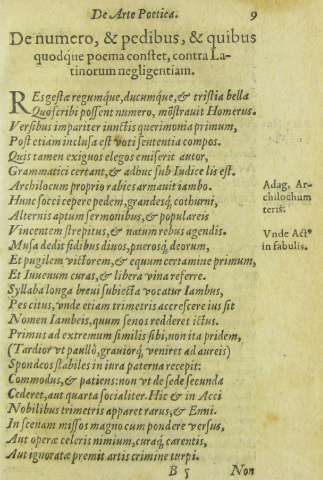 De Arte Poetica. 9
De numero, & pedibus, & quibus
quodque poema constet, contra La-
tinorum negligentiam.
RES gestæ regumque, ducumque, & tristia bella
Quo scribi possent numero, mõstrauit Homerus.
Versibus impariter iunctis querimonia primum,
Post etiam inclusa est voti sententia compos.
Quis tamen exiguos elegos emiserit autor,
Grammatici certant, & adhuc sub Iudice lis est.
Archilocum proprio rabies armauit iambo. Adag, Ar-
Hunc socci cepere pedem, grandesq; cothurni, chilochum
Alternis aptum sermonibus, & populareis teris.
Vincentem strepitus, & natum rebus agendis. Vnde Actº
Musa dedit fidibus diuos, puerosq; deorum, in fabulis.
Et pugilem victorem, & equum certamine primum,
Et Iuuenum curas, & libera vina referre.
Syllaba longa breui subiecta vocatur Iambus,
Pes citus, vnde etiam trimetris accrescere ius sit
Nomen Iambeis, quum senos redderet ictus.
Primus ad extremum similis sibi, non ita pridem,
(Tardior vt paullò, grauiorq; veniret ad aureis)
Spondeos stabiles in iura paterna recepit:
Commodus, & patiens: non vt de sede secunda
Cederet, aut quarta socialiter. Hic & in Acci
Nobilibus trimetris apparet rarus, & Enni.
In scenam missos magno cum pondere versus,
Aut operæ celeris nimium, curaq; carentis,
Aut ignoratæ premit artis crimine turpi.
B 5 Non